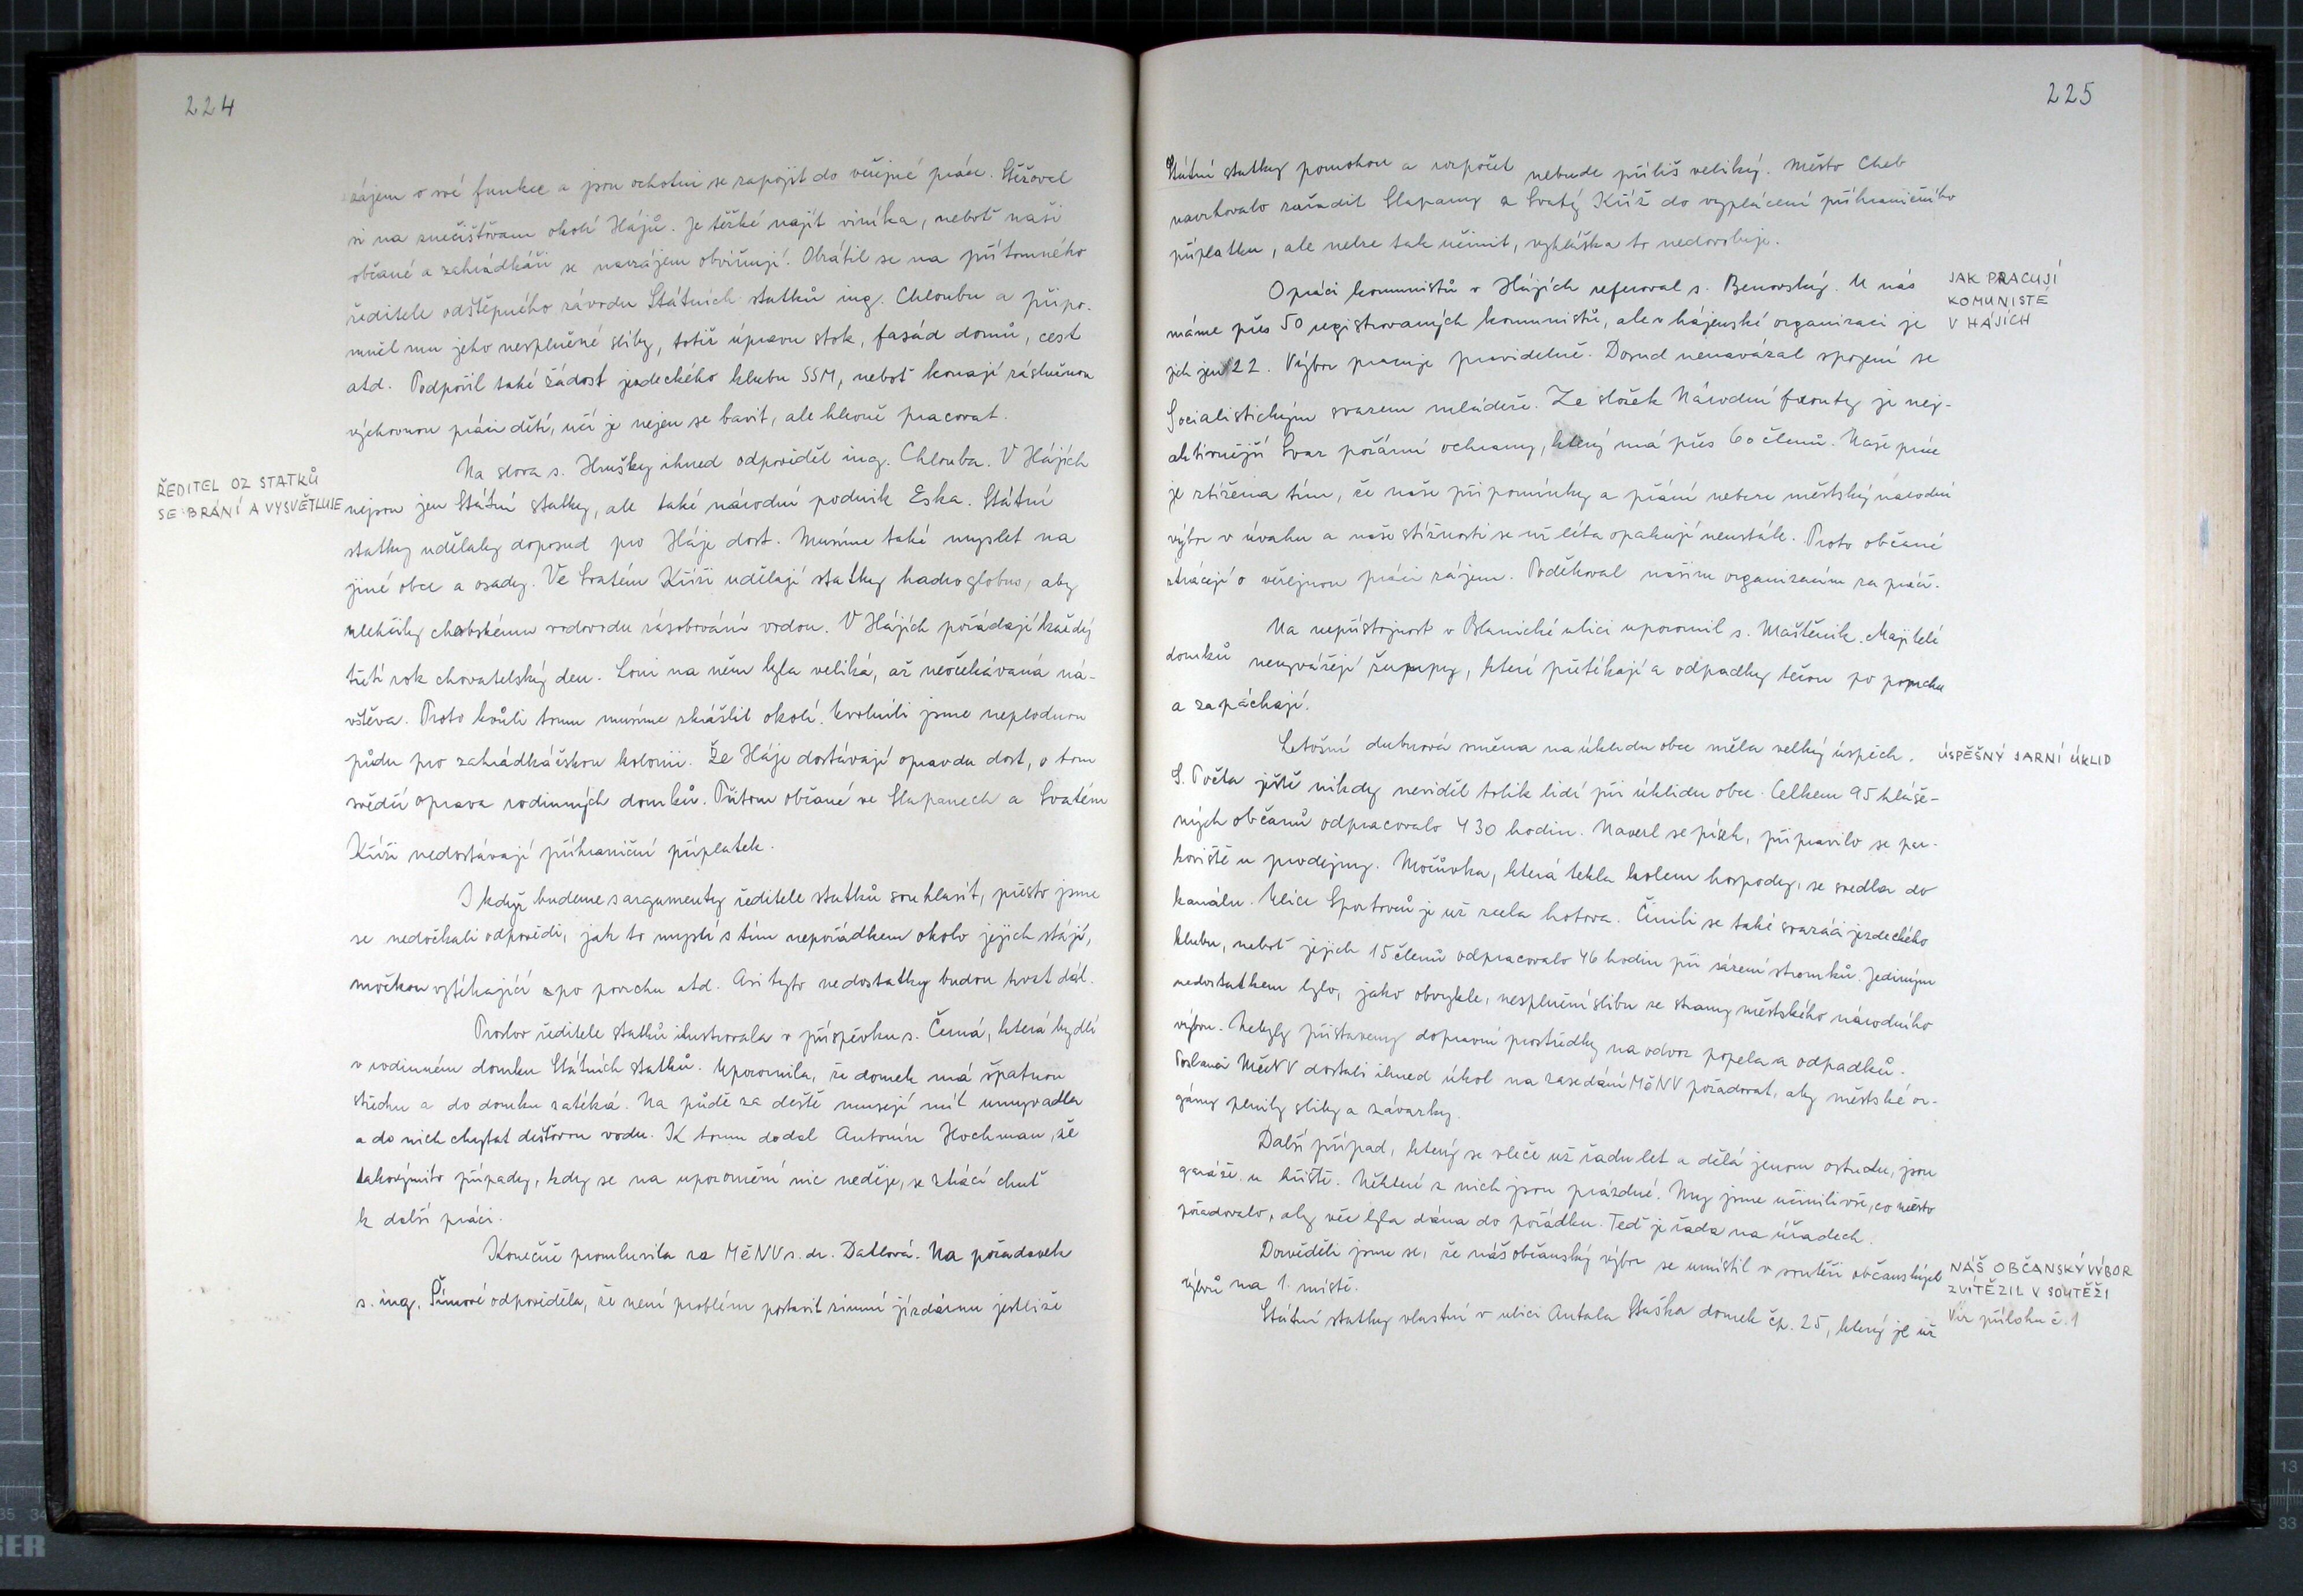 224
zájem o své funkce a jsou ochotni se zapojit do veřejné práce. Stěžoval
si na znečišťovaní okolí Hájů. Je těžké najít viníka, neboť naši
občané a zahrádkáři se navzájem obviňují. Obrátil se na přítomného
ředitele odštěpného závodu Státních statků ing. Chloubu a připo-
mněl mu jeho nesplněné sliby, totiž úpravu stok, fasád domů, cest
atd. Podpořil také žádost jezdeckého klubu SSM, neboť konají záslužnou
výchovnou práci dětí, učí je nejen se bavit, ale hlavně pracovat.
Na slova s. Hrušky ihned odpověděl ing. Chlouba. V Hájích
ŘEDITEL OZ STATKŮ
SE BRÁNÍ A VYSVĚTLUJE
nejsou jen Státní statky, ale také národní podnik Eska. Státní
statky udělaly doposud pro Háje dost. Musíme také myslet na
jiné obce a osady. Ve Svatém Kříži udělají statky hadroglobus, aby
ulehčily chebskému vodovodu zásobování vodou. V Hájích pořádají každý
třetí rok chovatelský den. Loni na něm byla veliká, až neočekávaná ná-
vštěva. Proto kvůli tomu musíme zkrášlit okolí. Uvolnili jsme neplodnou
půdu pro zahrádkářskou kolonii. Že Háje dostávají opravdu dost, o tom
svědčí oprava rodinných domků. Přitom občané ve Slapanech a Svatém
Kříži nedostávají příhraniční příplatek.
I když budeme s argumenty ředitele statků souhlasit, přesto jsme
se nedočkali odpovědi, jak to myslí s tím nepořádkem okolo jejich stájí,
močkou vytékající po povrchu atd. Asi tyto nedostatky budou trvat dál.
Proslov ředitele statků ilustrovala v příspěvku s. Černá, která bydlí
v rodinném domku Státních statků. Upozornila, že domek má špatnou
střechu a do domku zatéká. Na půdě za deště musejí mít umyvadla
a do nich chytat dešťovou vodu. K tomu dodal Antonín Hochman, že
takovýmito případy, kdy se na upozornění nic neděje, se ztrácí chuť
k další práci.
Konečně promluvila za MěNV s. dr. Datlová. Na požadavek
s. ing. Šímové odpověděla, že není problém postavit zimní jízdárnu jestliže
225
Státní statky pomohou a rozpočet nebude příliš veliký. Město Cheb
navrhovalo zařadit Slapany a Svatý Kříž do vyplácení příhraničního
příplatku, ale nelze tak učinit, vyhláška to nedovoluje.
O práci komunistů v Hájích referoval s. Benovský. U nás
JAK PRACUJÍ
KOMUNISTÉ
V HÁJÍCH
máme přes 50 registrovaných komunistů, ale v hájenské organizaci je
jich jen 22. Výbor pracuje pravidelně. Dosud nenavázal spojení se
Socialistickým svazem mládeže. Ze složek Národní fronty je nej-
aktivnější Svaz požární ochrany, který má přes 60 členů. Naše práce
je ztížena tím, že naše připomínky a přání nebere městský národní
výbor v úvahu a naše stížnosti se už léta opakují neustále. Proto občané
ztrácejí o veřejnou práci zájem. Poděkoval našim organizacím za práci.
Na nepřístojnost v Blanické ulici upozornil s. Maštěnik. Majitelé
domků nevyvážejí žumpy, které přetékají a odpadky tečou po povrchu
a zapáchají.
Letošní dubnová směna na úklidu obce měla velký úspěch.
ÚSPĚŠNÝ JARNÍ ÚKLID
S. Počta ještě nikdy neviděl tolik lidí při úklidu obce. Celkem 95 hláše-
ných občanů odpracovalo 430 hodin. Navezl se písek, připravilo se par-
koviště u prodejny. Močůvka, která tekla kolem hospody, se svedla do
kanálu. Ulice Sportovců je už zcela hotova. Činili se také svazáci jezdeckého
klubu, neboť jejich 15 členů odpracovalo 46 hodin při sázení stromků. Jediným
nedostatkem bylo, jako obvykle, nesplnění slibu ze strany městského národního
výboru. Nebyly přistaveny dopravní prostředky na odvoz popela a odpadků.
Poslanci MěstNV dostali ihned úkol na zasedání MěNV požadovat, aby městské or-
gány plnily sliby a závazky.
Další případ, který se vleče už řadu let a dělá jenom ostudu, jsou
garáže u hřiště. Některé z nich jsou prázdné. My jsme učinili vše, co město
požadovalo, aby věc byla dána do pořádku. Teď je řada na úřadech.
Dozvěděli jsme se, že náš občanský výbor se umístil v soutěži občanských
NÁŠ OBČANSKÝ VÝBOR
ZVÍTĚZIL V SOUTĚŽI
výborů na 1. místě.
Viz příloha č. 1
Státní statky vlastní v ulici Antala Staška domek čp. 25, který je už